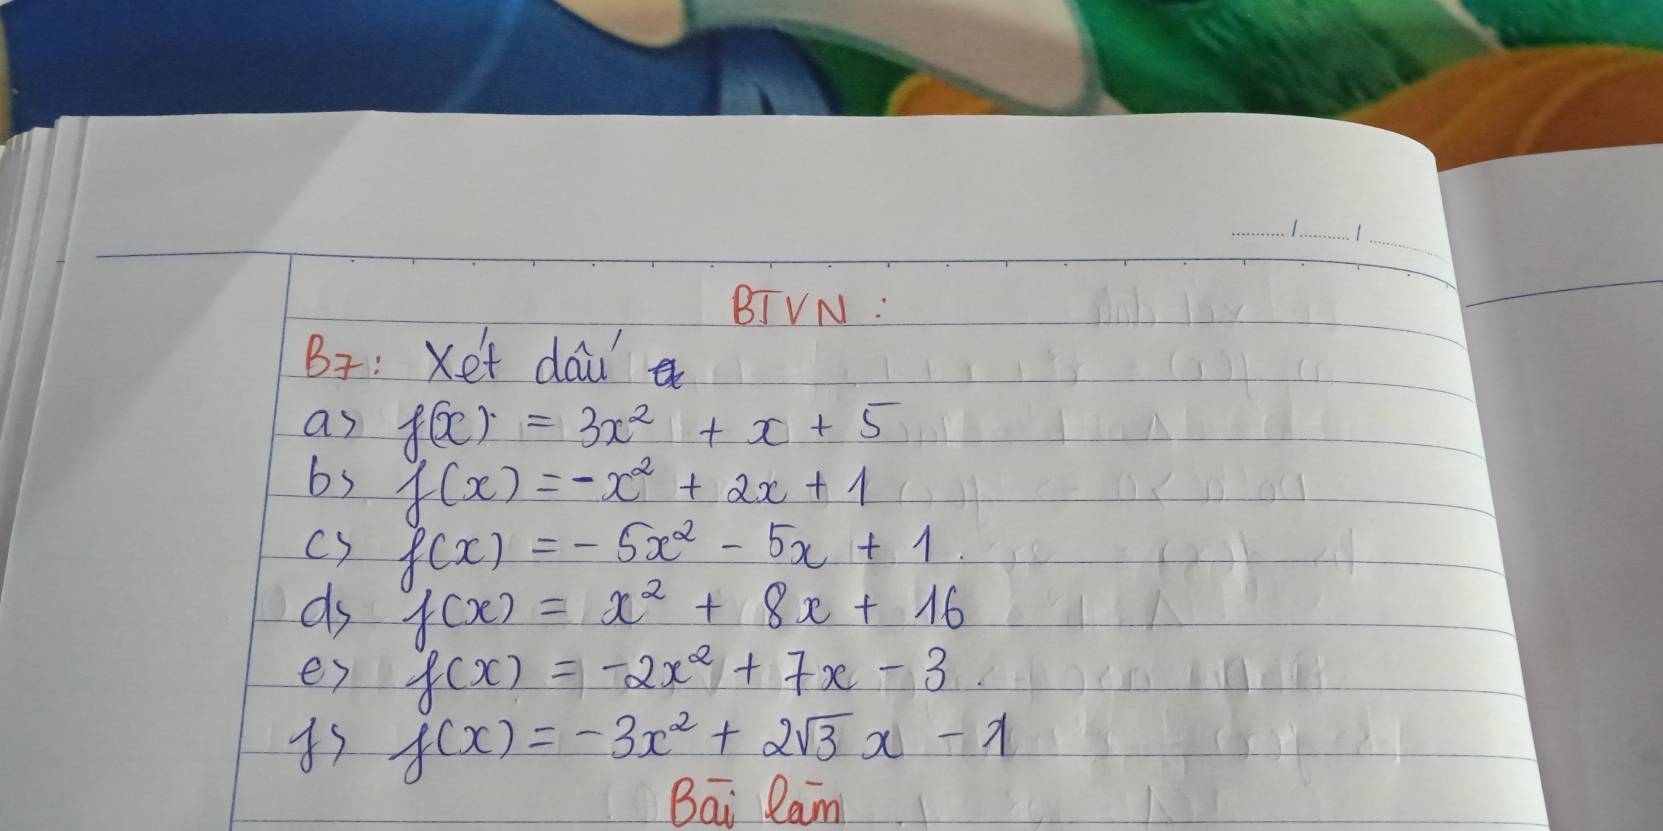 BTVN :
B7: Xét dấu
a> f(x) = 3x² + x + 5
b> f(x) = -x² + 2x + 1
c> f(x) = - 5x² - 5x + 1.
d> f(x) = x² + 8x + 16
e> f(x) = -2x² + 7x - 3.
f> f(x) = -3x² + 2√3 x - 1
Bài làm